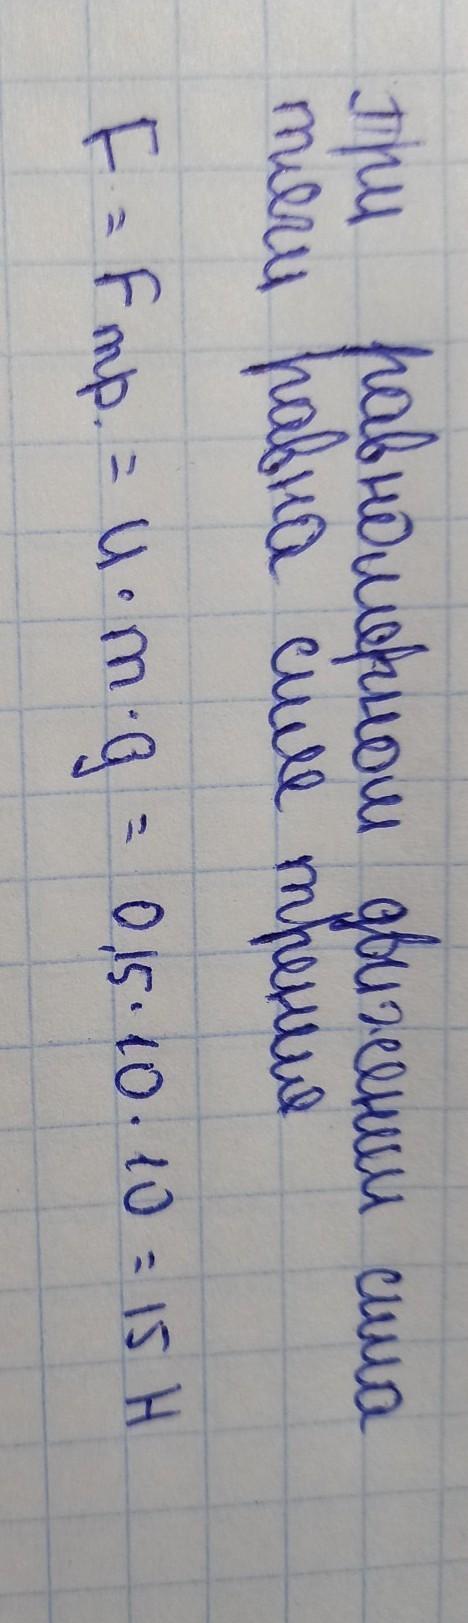 При равномерном движении сила
тяги равна силе трения
F = Fтр. = μ · m · g = 0,15 · 10 · 10 = 15 Н